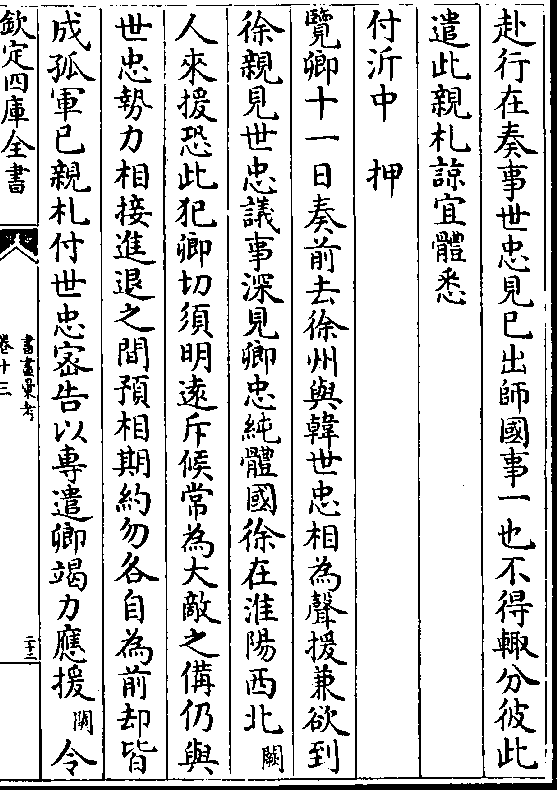 赴行在奏事世忠見已出師國事一也不得輙分彼此
遣此親札諒宜體悉
付沂中　押
覽卿十一日奏前去徐州與韓世忠相為聲援兼欲到
徐親見世忠議事深見卿忠純體國徐在淮陽西北闕
人來援恐此犯卿切須明遠斥候常為大敵之備仍與
世忠勢力相接進退之間預相期約勿各自為前却皆
成孤軍已親札付世忠宻告以專遣卿竭力應援闕令
欽定四庫全書
書畫彚考
卷十三
二十三